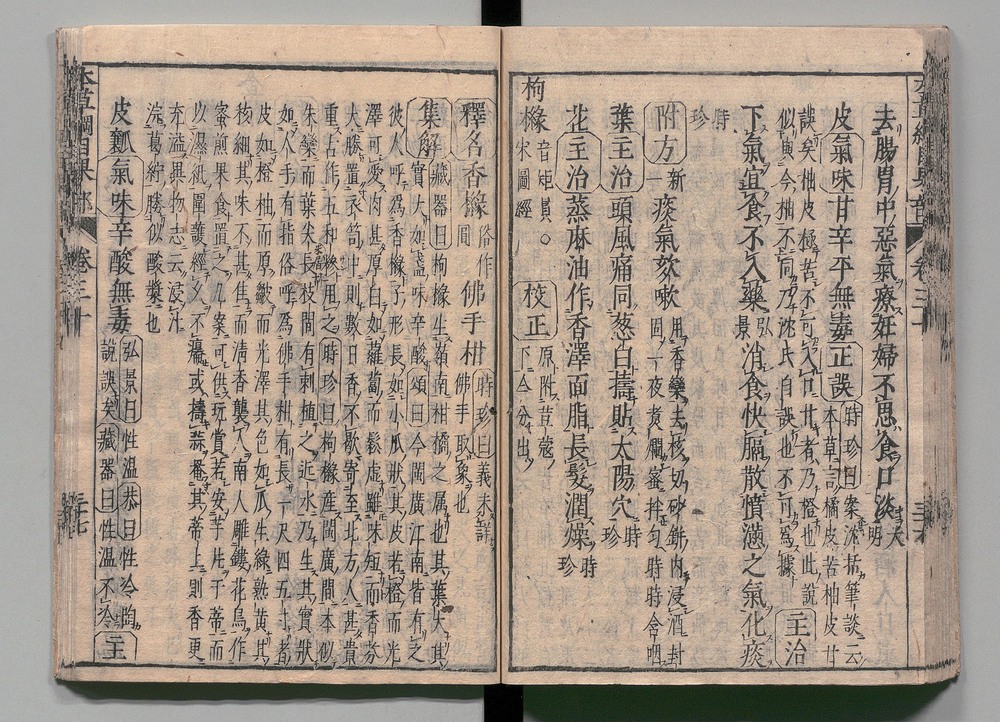 去腸胃中惡氣療妊婦不思食口淡大明
皮氣味甘辛平無毒正誤時珍曰案沈括筆談云本草言橘皮苦柚皮甘
誤矣柚皮極苦不可入口甘者乃橙也此說似與今柚不同乃沈氏自誤也不可為據主治
下氣宜食不入藥弘景消食快膈散憤懣之氣化痰
時珍
附方新一痰氣欬嗽用香欒去核切砂缾內浸酒封固一夜煮爛蜜拌勻時時含嚥
葉主治頭風痛同葱白擣貼太陽穴時珍
花主治蒸麻油作香澤面脂長髮潤燥時珍
枸櫞音矩員。宋圖經校正原附荳蔻下今分出
釋名香櫞俗作圓佛手柑時珍曰義未詳佛手取象也
集解藏器曰枸櫞生嶺南柑橘之屬也其葉大其
實大如盞味辛酸頌曰今閩廣江南皆有之
彼人呼為香櫞子形長如小瓜狀其皮若橙而光
澤可愛肉甚厚白如蘿蔔而鬆虛雖味短而香芬
大勝置衣笥中則數日香不歇寄至北方人甚貴
重古作五和糝用之時珍曰枸櫞產閩廣間木似
朱欒而葉尖長枝間有刺植之近水乃生其實狀
如人手有指俗呼為佛手柑有長一尺四五寸者
皮如橙柚而厚皺而光澤其色如瓜生綠熟黃其
核細其味不甚佳而清香襲人南人雕鏤花鳥作
蜜煎果食置之几案可供玩賞若安芋片于蒂而
以濕紙圍護經久不癟或擣蒜罨其蒂上則香更
充溢異物志云浸汁
浣葛紵勝似酸漿也
皮瓤氣味辛酸無毒弘景曰性溫恭曰性冷陶說誤矣藏器曰性溫不冷主
本草綱目果部
卷三十
三十七